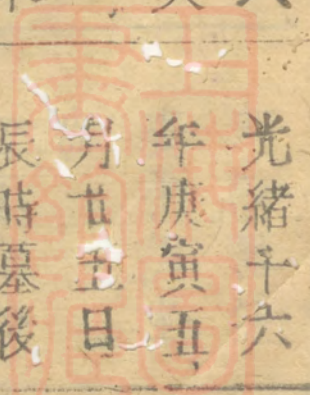 光緒十六
年庚寅五
月廿五日
辰時墓後